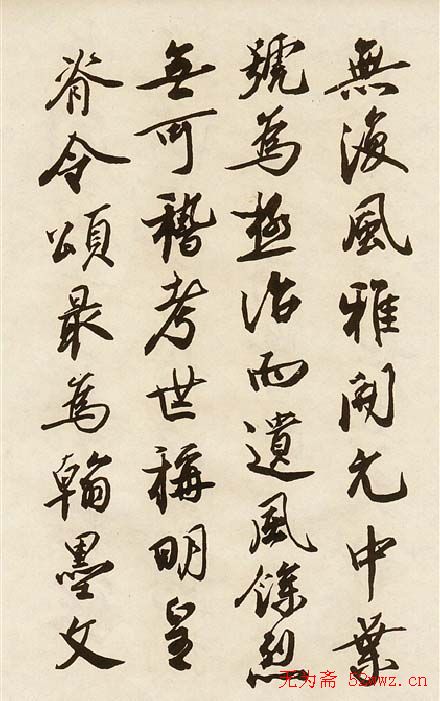 無復風雅開元中葉
號為極治而遺風餘烈
無可稽考世稱明皇
脊令頌最為翰墨文
无为斋 52wwz.cn